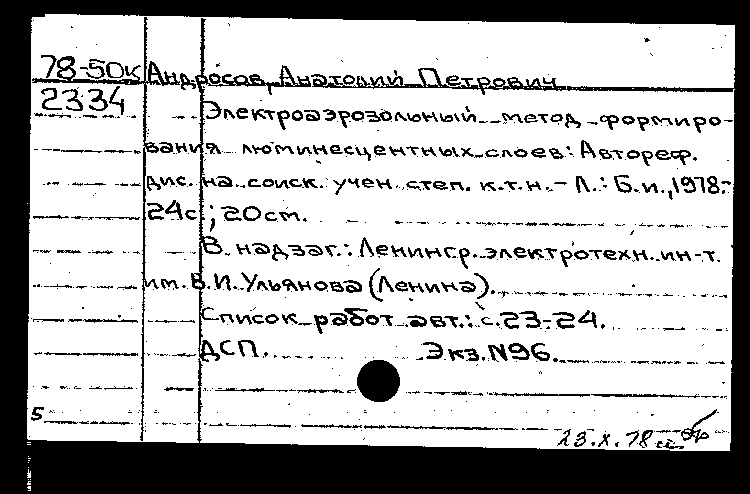 78-50к Андросов, Анатолий Петрович
2334 Электроаэрозольный метод формиро-
вания люминесцентных слоев: Автореф.
дис. на соиск. учен. степ. к.т.н. - Л.: Б.и., 1978.-
24с.; 20см.
В надзаг.: Ленингр. электротехн. ин-т.
им. В.И. Ульянова (Ленина).
Список работ авт.: с. 23-24.
ДСП. Экз. N96.
5
23.X.78